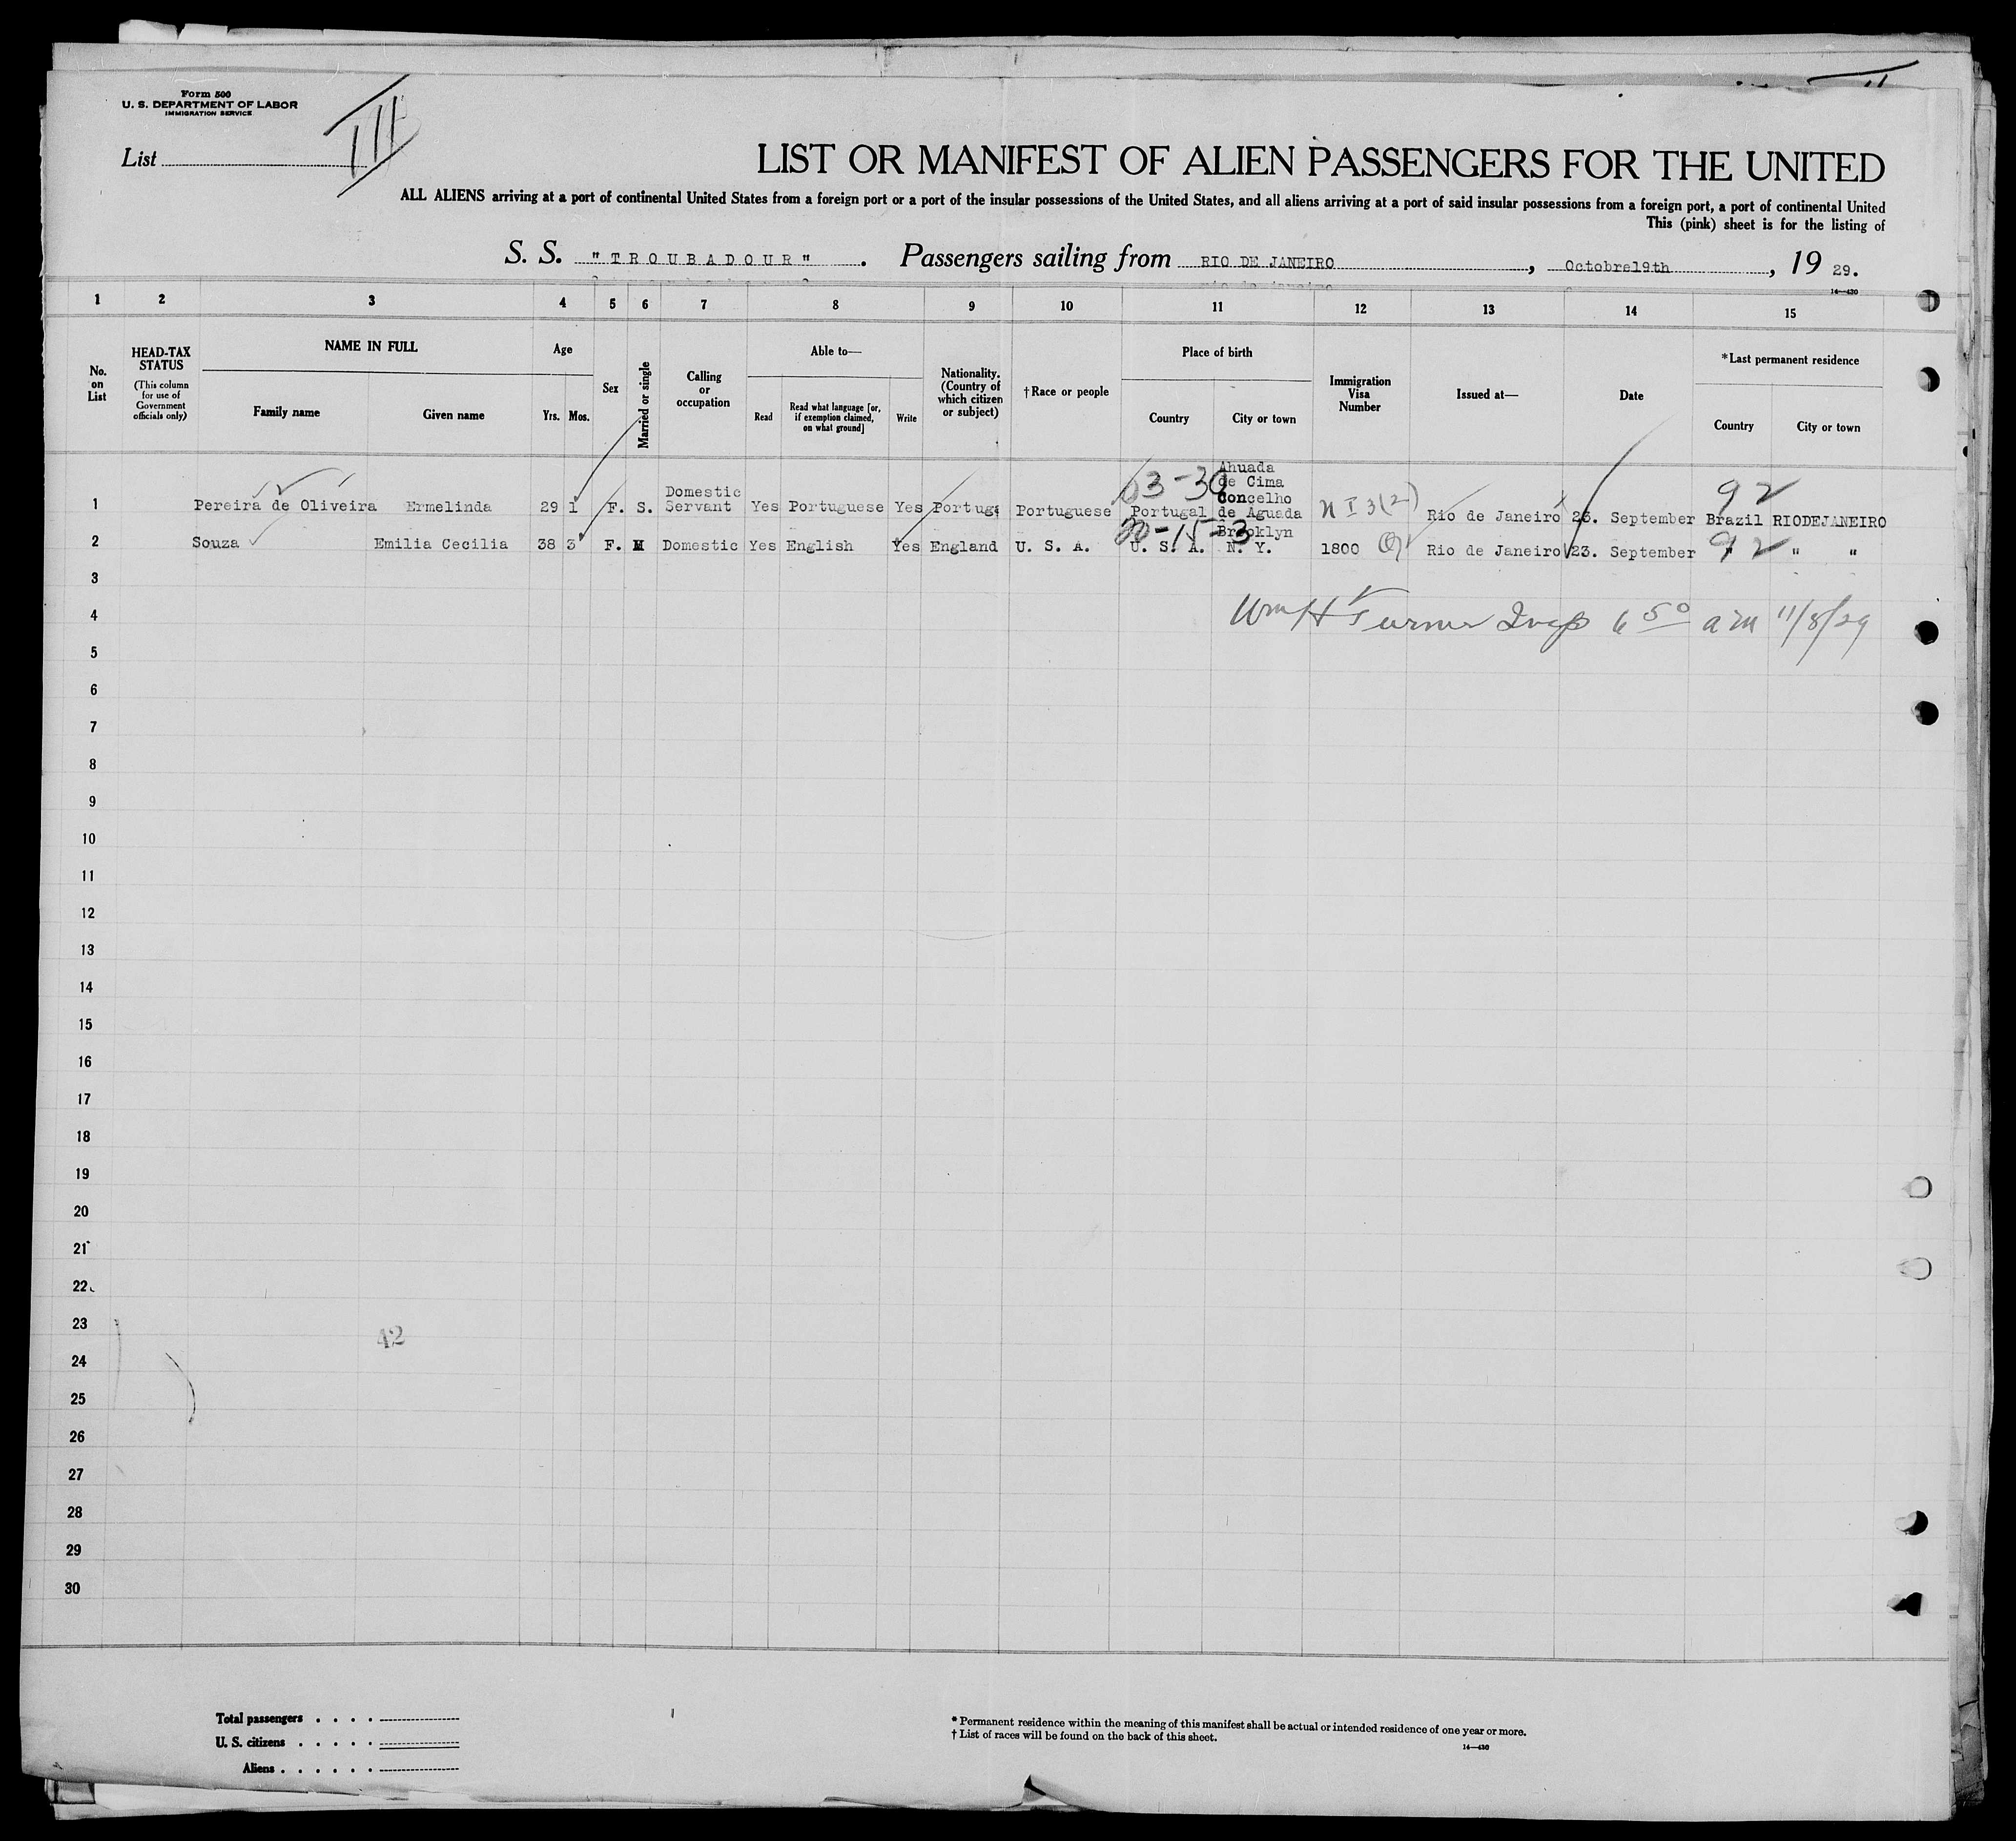 Form 500
U. S. DEPARTMENT OF LABOR
IMMIGRATION SERVICE
III
List
LIST OR MANIFEST OF ALIEN PASSENGERS FOR THE UNITED
ALL ALIENS arriving at a port of continental United States from a foreign port or a port of the insular possessions of the United States, and all aliens arriving at a port of said insular possessions from a foreign port, a port of continental United
This (pink) sheet is for the listing of
S. S. "TROUBADOUR". Passengers sailing from RIO DE JANEIRO, Octobre19th, 19 29.
14—430
1 2 3 4 5 6 7 8 9 10 11 12 13 14 15
No. on List
HEAD-TAX STATUS
(This column for use of Government officials only)
NAME IN FULL
Family name Given name
Age
Yrs. Mos.
Sex
Married or single
Calling or occupation
Able to—
Read
Read what language [or, if exemption claimed, on what ground]
Write
Nationality. (Country of which citizen or subject)
†Race or people
Place of birth
Country City or town
Immigration Visa Number
Issued at—
Date
*Last permanent residence
Country City or town
1 Pereira de Oliveira Ermelinda 29 1 F. S. Domestic Servant Yes Portuguese Yes Portuga Portuguese Portugal Ahuada de Cima Concelho de Aguada N I 3(2) Rio de Janeiro 23. September Brazil RIODEJANEIRO
03-30 92
2 Souza Emilia Cecilia 38 3 F. M Domestic Yes English Yes England U. S. A. U. S. A. Brooklyn N. Y. 1800 Rio de Janeiro 23. September " " "
-15-3 92
3
4 Wm H Turner Insp 6 50 am 11/8/29
5
6
7
8
9
10
11
12
13
14
15
16
17
18
19
20
21
22
23
42
24
25
26
27
28
29
30
Total passengers . . . .
U. S. citizens . . . . .
Aliens . . . . . .
* Permanent residence within the meaning of this manifest shall be actual or intended residence of one year or more.
† List of races will be found on the back of this sheet.
14—430